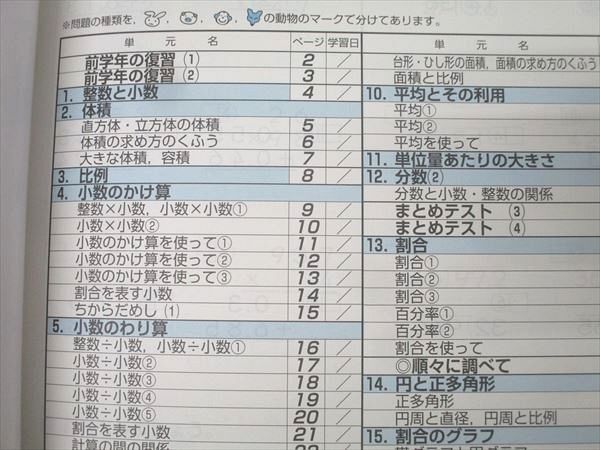 ※問題の種類を, , , , の動物のマークで分けてあります。
単 元 名 ページ 学習日
前学年の復習 (1) 2 /
前学年の復習 (2) 3 /
1. 整数と小数 4 /
2. 体積
直方体・立方体の体積 5 /
体積の求め方のくふう 6 /
大きな体積, 容積 7 /
3. 比例 8 /
4. 小数のかけ算
整数×小数, 小数×小数① 9 /
小数×小数② 10 /
小数のかけ算を使って① 11 /
小数のかけ算を使って② 12 /
小数のかけ算を使って③ 13 /
割合を表す小数 14 /
ちからだめし (1) 15 /
5. 小数のわり算
整数÷小数, 小数÷小数① 16 /
小数÷小数② 17 /
小数÷小数③ 18 /
小数÷小数④ 19 /
小数÷小数⑤ 20 /
割合を表す小数 21 /
計算の間の関係 22
単 元 名
台形・ひし形の面積, 面積の求め方のくふう
面積と比例
10. 平均とその利用
平均①
平均②
平均を使って
11. 単位量あたりの大きさ
12. 分数(2)
分数と小数・整数の関係
まとめテスト (3)
まとめテスト (4)
13. 割合
割合①
割合②
割合③
百分率①
百分率②
割合を使って
◎順々に調べて
14. 円と正多角形
正多角形
円周と直径, 円周と比例
15. 割合のグラフ